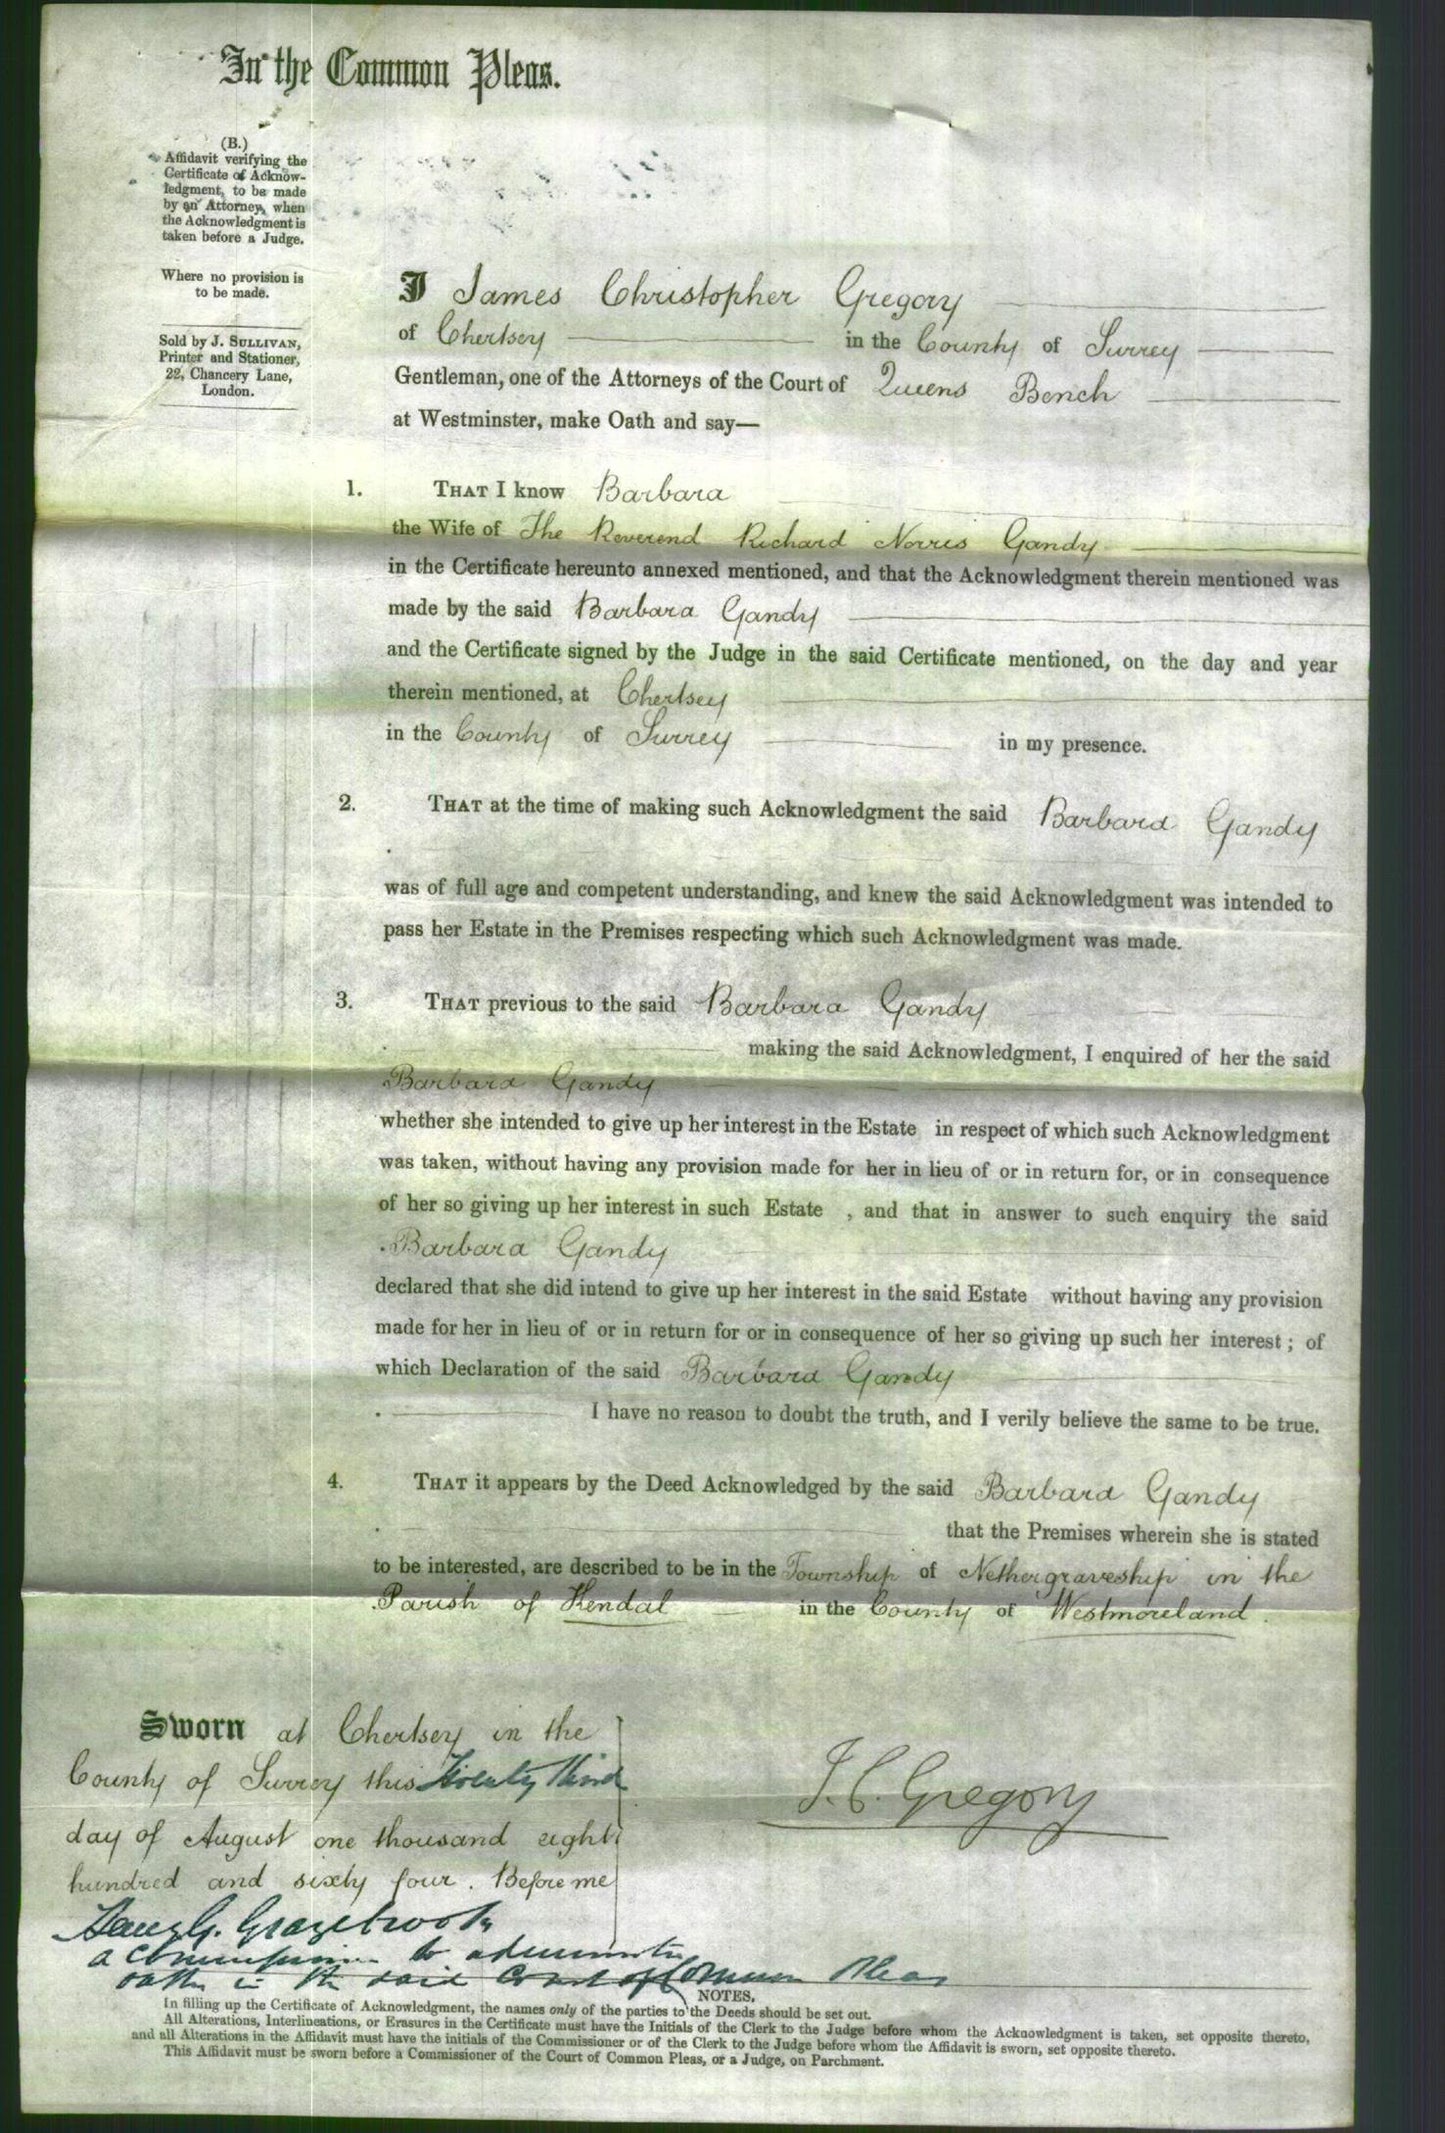 In the Common Pleas.
(B.)
Affidavit verifying the
Certificate of Acknow-
ledgment, to be made
by an Attorney, when
the Acknowledgment is
taken before a Judge.
Where no provision is
to be made.
Sold by J. SULLIVAN,
Printer and Stationer,
22, Chancery Lane,
London.
I James Christopher Gregory
of Chertsey in the County of Surrey
Gentleman, one of the Attorneys of the Court of Queens Bench
at Westminster, make Oath and say—
1. THAT I know Barbara
the Wife of The Reverend Richard Norris Gandy
in the Certificate hereunto annexed mentioned, and that the Acknowledgment therein mentioned was
made by the said Barbara Gandy
and the Certificate signed by the Judge in the said Certificate mentioned, on the day and year
therein mentioned, at Chertsey
in the County of Surrey in my presence.
2. THAT at the time of making such Acknowledgment the said Barbara Gandy
was of full age and competent understanding, and knew the said Acknowledgment was intended to
pass her Estate in the Premises respecting which such Acknowledgment was made.
3. THAT previous to the said Barbara Gandy
making the said Acknowledgment, I enquired of her the said
Barbara Gandy
whether she intended to give up her interest in the Estate in respect of which such Acknowledgment
was taken, without having any provision made for her in lieu of or in return for, or in consequence
of her so giving up her interest in such Estate , and that in answer to such enquiry the said
Barbara Gandy
declared that she did intend to give up her interest in the said Estate without having any provision
made for her in lieu of or in return for or in consequence of her so giving up such her interest; of
which Declaration of the said Barbara Gandy
I have no reason to doubt the truth, and I verily believe the same to be true.
4. THAT it appears by the Deed Acknowledged by the said Barbara Gandy
that the Premises wherein she is stated
to be interested, are described to be in the Township of Nethergraveship in the
Parish of Kendal in the County of Westmoreland.
Sworn at Chertsey in the
County of Surrey this Twenty third
day of August one thousand eight
hundred and sixty four. Before me
J. C. Gregory
G. Grazebrook
a commissioner to administer
oaths in the said Court of Common Pleas
NOTES.
In filling up the Certificate of Acknowledgment, the names only of the parties to the Deeds should be set out.
All Alterations, Interlineations, or Erasures in the Certificate must have the Initials of the Clerk to the Judge before whom the Acknowledgment is taken, set opposite thereto,
and all Alterations in the Affidavit must have the initials of the Commissioner or of the Clerk to the Judge before whom the Affidavit is sworn, set opposite thereto.
This Affidavit must be sworn before a Commissioner of the Court of Common Pleas, or a Judge, on Parchment.